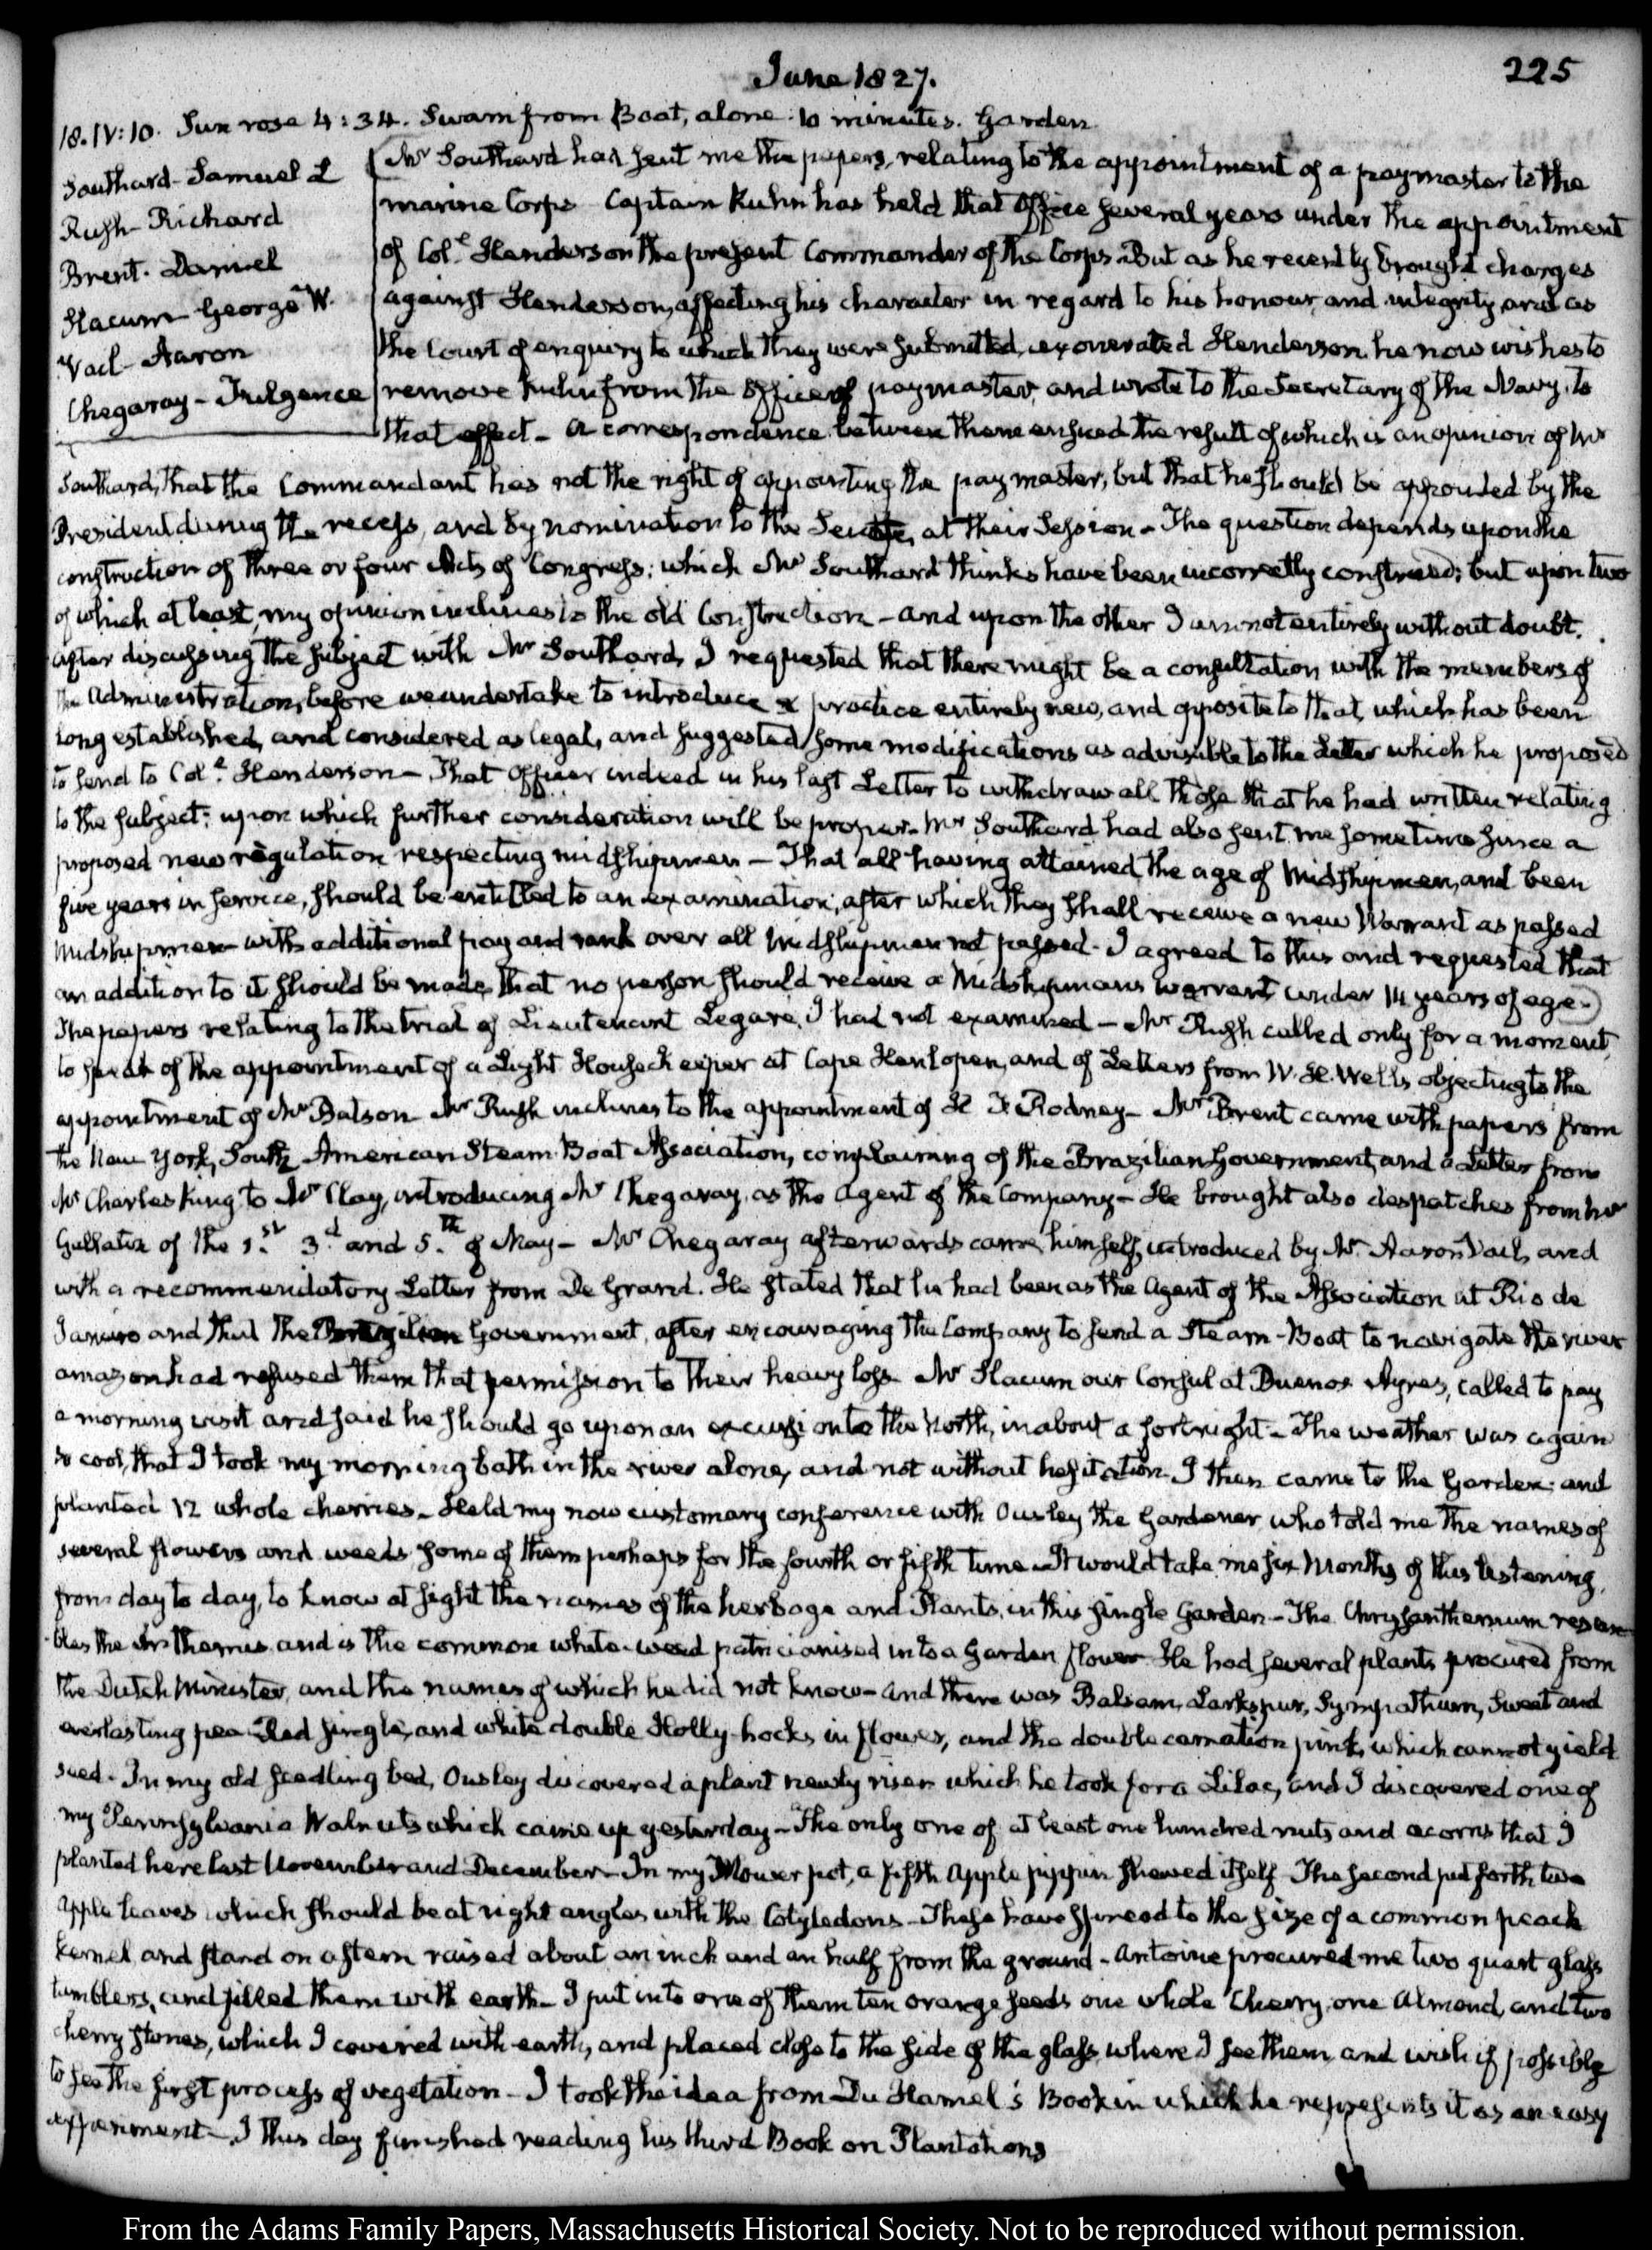 June 1827.
225
18. IV:10. Sun rose 4:34. Swam from Boat, alone. 10 minutes. Garden
Southard- Samuel L
Rush- Richard
Brent. Daniel
Slacum George W.
Vail- Aaron
Chegaray- Fulgence
Mr Southard had sent me the papers, relating to the appointment of a paymaster to the
marine Corps Captain Kuhn has held that Office several years under the appointment
of Col.l Henderson the present Commander of the Corps. But as he recently brought charges
against Henderson, affecting his character in regard to his honour, and integrity, and as
the Court of enquiry to which they were submitted, exonerated Henderson, he now wishes to
remove Kuhn from the Office of paymaster, and wrote to the Secretary of the Navy, to
that effect- A correspondence between them ensued the result of which is an opinion of Mr
Southard, that the Commandant has not the right of appointing the paymaster, but that he should be appointed by the
President during the recess, and by nomination to the Senate, at their Session- The question depends upon the
construction of three or four Acts of Congress; which Mr Southard thinks have been incorrectly construed; but upon two
of which at least, my opinion inclines to the old Construction- and upon the other I am not entirely without doubt.
After discussing the subject with Mr Southard, I requested that there might be a consultation with the members of
the Administration, before we undertake to introduce a practice entirely new, and opposite to that, which has been
long established, and considered as legal, and suggested some modifications as advisable to the Letter which he proposed
to send to Col.l Henderson- That Officer indeed in his last Letter to withdraw all those that he had written relating
to the subject; upon which further consideration will be proper- Mr Southard had also sent me sometime since a
proposed new regulation respecting midshipmen- That all having attained the age of Midshipmen, and been
five years in service, should be entitled to an examination, after which they shall receive a new Warrant as passed
Midshipmen with additional pay and rank over all Midshipmen not passed- I agreed to this and requested that
an addition to it should be made, that no person should receive a Midshipmans warrant under 14 years of age-)
The papers relating to the trial of Lieutenant Legare, I had not examined- Mr Rush called only for a moment,
to speak of the appointment of a Light Housekeeper at Cape Henlopen, and of Letters from W. H. Wells objecting to the
appointment of Mr Batson Mr Rush inclines to the appointment of H F Rodney- Mr Brent came with papers from
the New York, South American Steam Boat Association, complaining of the Brazilian Government, and a Letter from
Mr Charles King to Mr Clay, introducing Mr Chegaray, as the Agent of the Company- He brought also despatches from Mr
Gallatin of the 1.st 3.d and 5.th of May- Mr Chegaray afterwards came himself, introduced by Mr Aaron Vail, and
with a recommendatory Letter from De Grand. He stated that he had been as the Agent of the Association at Rio de
Janeiro and that the Brazilian Government, after encouraging the Company to send a Steam-Boat to navigate the river
amazon had refused them that permission to their heavy loss Mr Slacum our Consul at Buenos Ayres, called to pay
a morning visit and said he should go upon an excursion to the North, in about a fortnight- The weather was again
so cool, that I took my morning bath in the river alone, and not without hesitation I then came to the Garden: and
planted 12 whole cherries- Held my now customary conference with Ousley the Gardener who told me the names of
several flowers and weeds some of them perhaps for the fourth or fifth time- It would take me six Months of this listening,
from day to day, to know at sight the names of the herbage and Plants, in this single Garden- The Chrysanthemum resem-
bles the Anthemis and is the common white-weed patricianised into a Garden flower He had several plants procured from
the Dutch Minister, and the names of which he did not know- And there was Balsam, Larkspur, Sympathium, Sweet and
everlasting pea Red single, and white double Holly-hocks in flower, and the double carnation pink, which cannot yield
seed- In my old seedling bed, Ousley discovered a plant newly risen which he took for a Lilac, and I discovered one of
my Pennsylvania Walnuts which came up yesterday- The only one of at least one hundred nuts and acorns that I
planted here last November and December- In my flower pot, a fifth Apple pippin shewed itself The second put forth two
Apple leaves which should be at right angles with the Cotyledons- These have spread to the size of a common peach
kernel, and stand on a stem raised about an inch and an half from the ground- Antoine procured me two quart glass
tumblers, and filled them with earth- I put into one of them ten orange seeds one whole Cherry, one Almond, and two
cherry stones, which I covered with earth, and placed close to the side of the glass, where I see them, and wish if possible
to see the first process of vegetation- I took the idea from Du Hamel's Book in which he represents it as an easy
experiment- I this day finished reading his third Book on Plantations
From the Adams Family Papers, Massachusetts Historical Society. Not to be reproduced without permission.